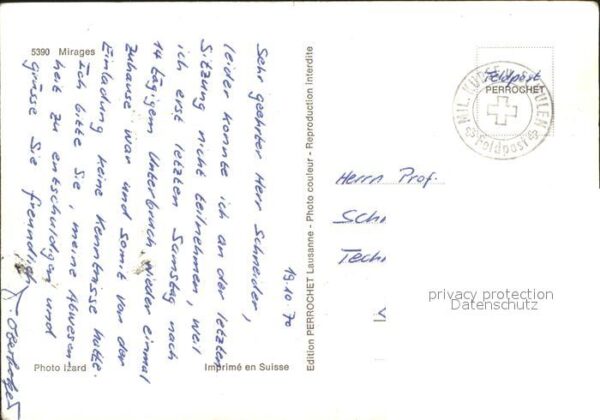 5390 Mirages
19.10.70
Sehr geehrter Herr Schneider,
leider konnte ich an der letzten
Sitzung nicht teilnehmen, weil
ich erst letzten Samstag nach
14 tägigem Unterbruch wieder einmal
zuhause war und somit von der
Einladung keine Kenntnisse hatte.
Ich bitte Sie, meine Abwesen-
heit zu entschuldigen und
grüsse Sie freundlich
Photo Izard
Imprimé en Suisse
Edition PERROCHET Lausanne - Photo couleur - Reproduction interdite
Feldpost
PERROCHET
MIL. KURSE U. SCHULEN
Feldpost
Herrn Prof.
Sch
Tech
privacy protection
Datenschutz